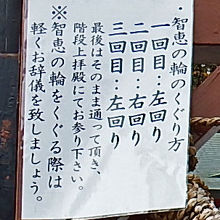 ・智恵の輪のくぐり方
一回目：左回り
二回目：右回り
三回目：左回り
最後はそのまま通って頂き、
階段上拝殿にてお参り下さい。
※智恵の輪をくぐる際は
軽くお辞儀を致しましょう。